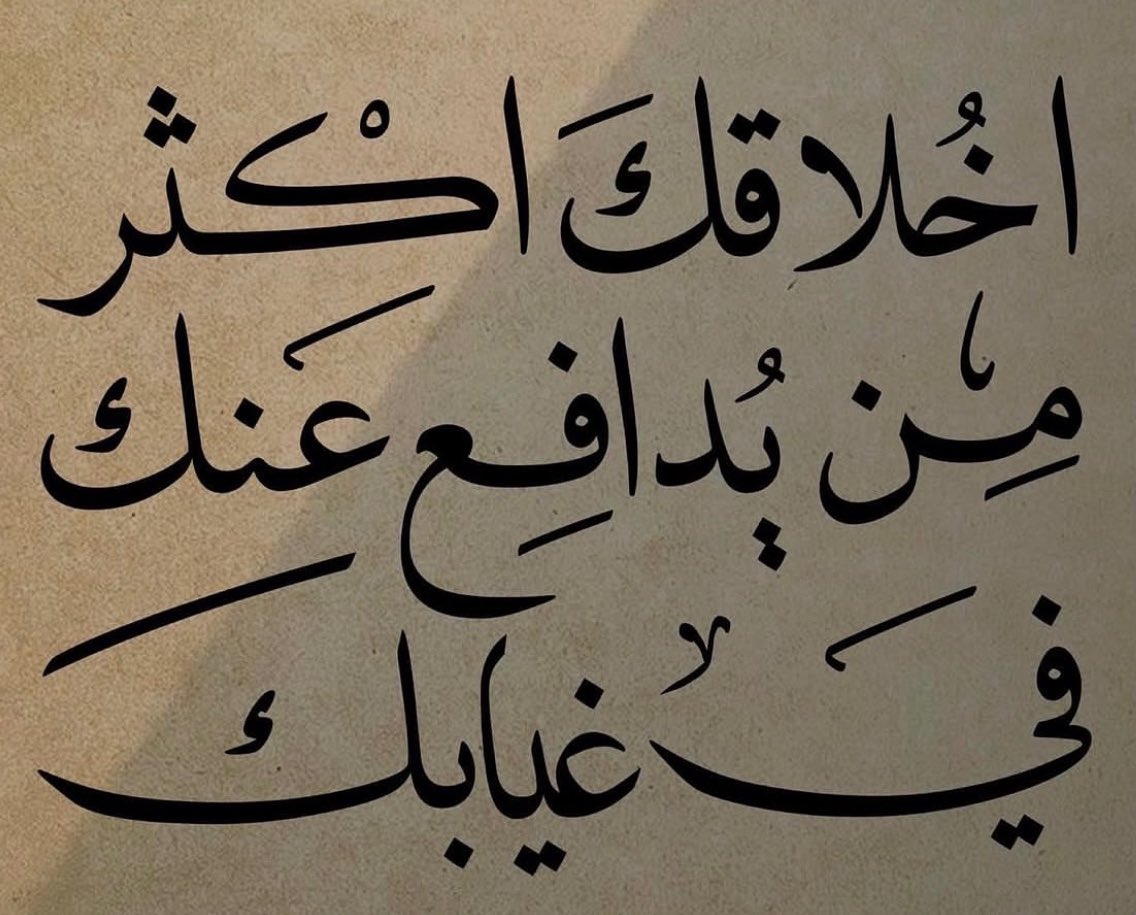 اخُلاقكَ اكْثر
مِن يُدافِع عَنك
في غيابكَ